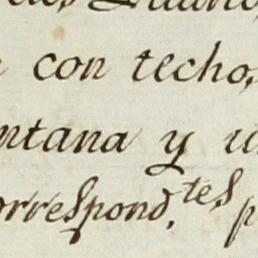 con techo,
ntana y u
orrespond.tes p